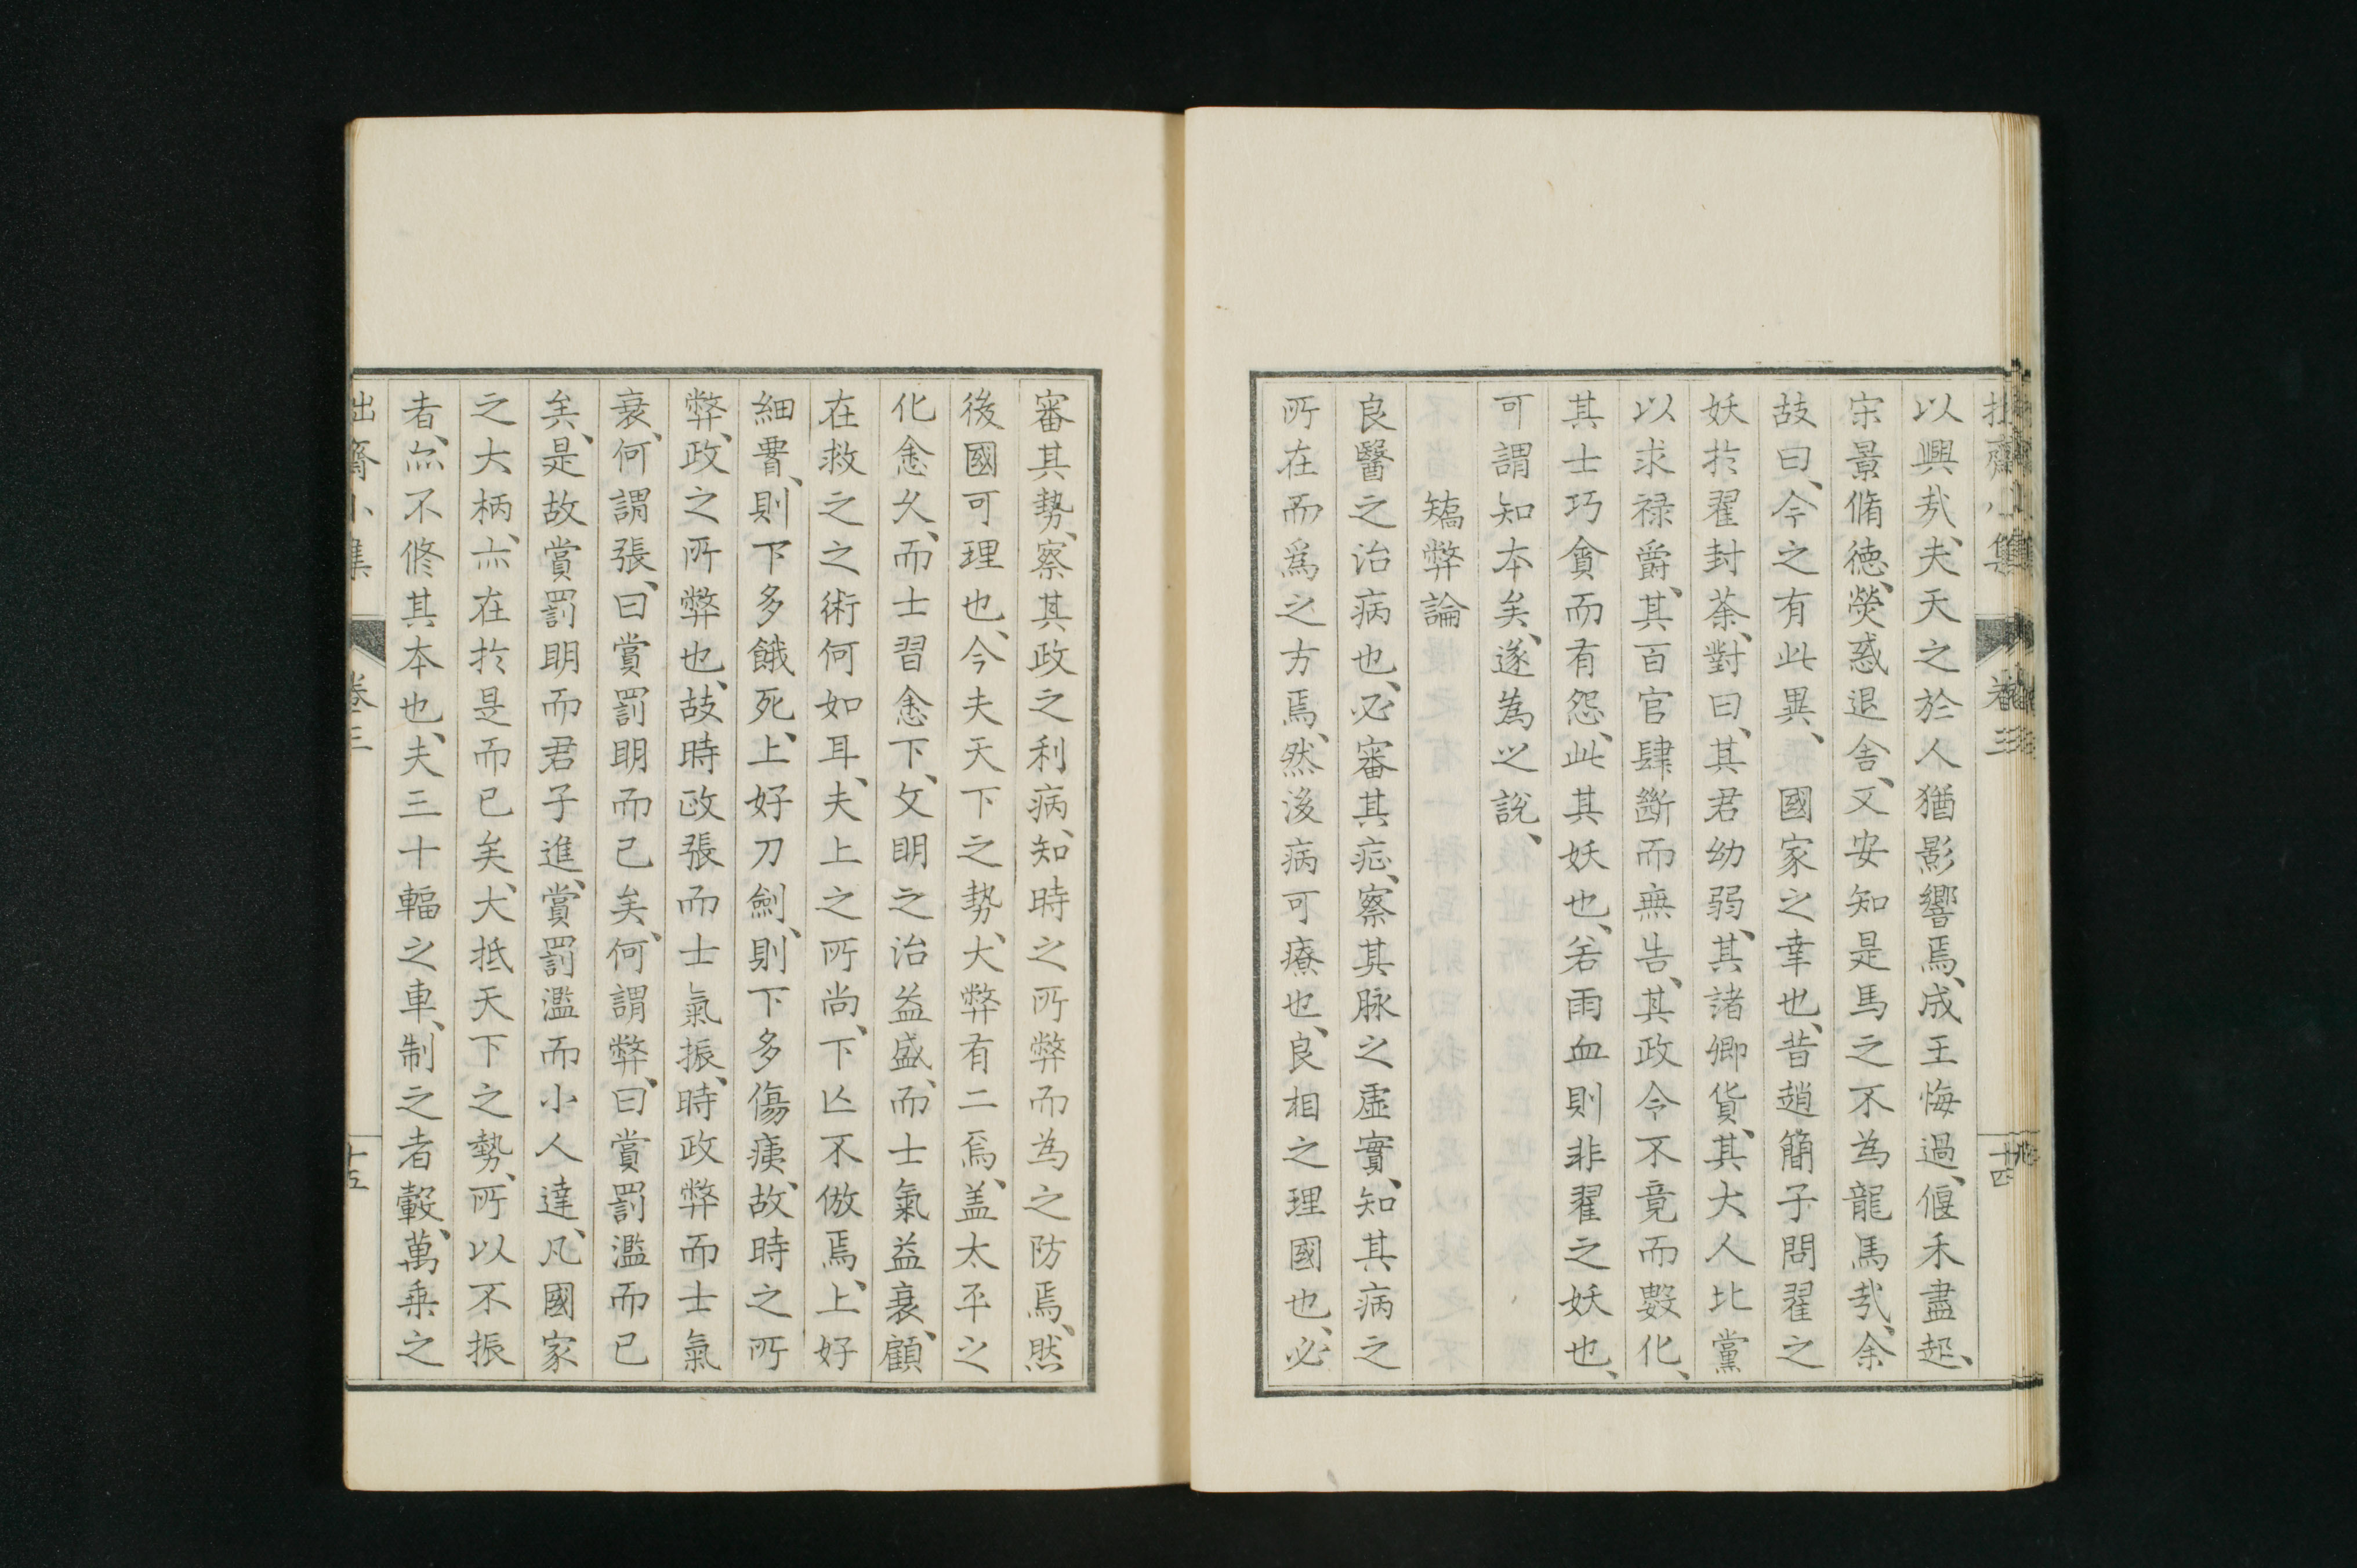 拙齋小集 卷三 十四
以興㢤、夫天之於人猶影響焉、成王悔過、偃禾盡起、
宋景脩徳、熒惑退舎、又安知是馬之不為龍馬㢤、余
故曰、今之有此異、國家之幸也、昔趙簡子問翟之
妖扵翟封荼、對曰、其君幼弱、其諸卿貨、其大人比黨
以求禄爵、其百官肆斷而無告、其政令不竟而數化、
其士巧貪而有怨、此其妖也、若雨血則非翟之妖也、
可謂知本矣、遂為之説、
矯弊論
良醫之治病也、必審其症、察其脉之虛實、知其病之
所在而爲之方焉、然後病可療也、良相之理國也、必
審其勢、察其政之利病、知時之所弊而為之防焉、然
後國可理也、今夫天下之勢、大弊有二焉、盖太平之
化悆久、而士習悆下、文明之治益盛、而士氣益衰、顧
在救之之術何如耳、夫上之所尚、下亾不倣焉、上好
細署、則下多餓死、上好刀劍、則下多傷痍、故時之所
弊、政之所弊也、故時政張而士氣振、時政弊而士氣
衰、何謂張、曰賞罰明而已矣、何謂弊、曰賞罰濫而已
矣、是故賞罰明而君子進、賞罰濫而小人達、凡國家
之大柄、亦在扵是而已矣、大抵天下之勢、所以不振
者、亦不修其本也、夫三十輻之車、制之者轂、萬乗之
拙齋小集 卷三 十五